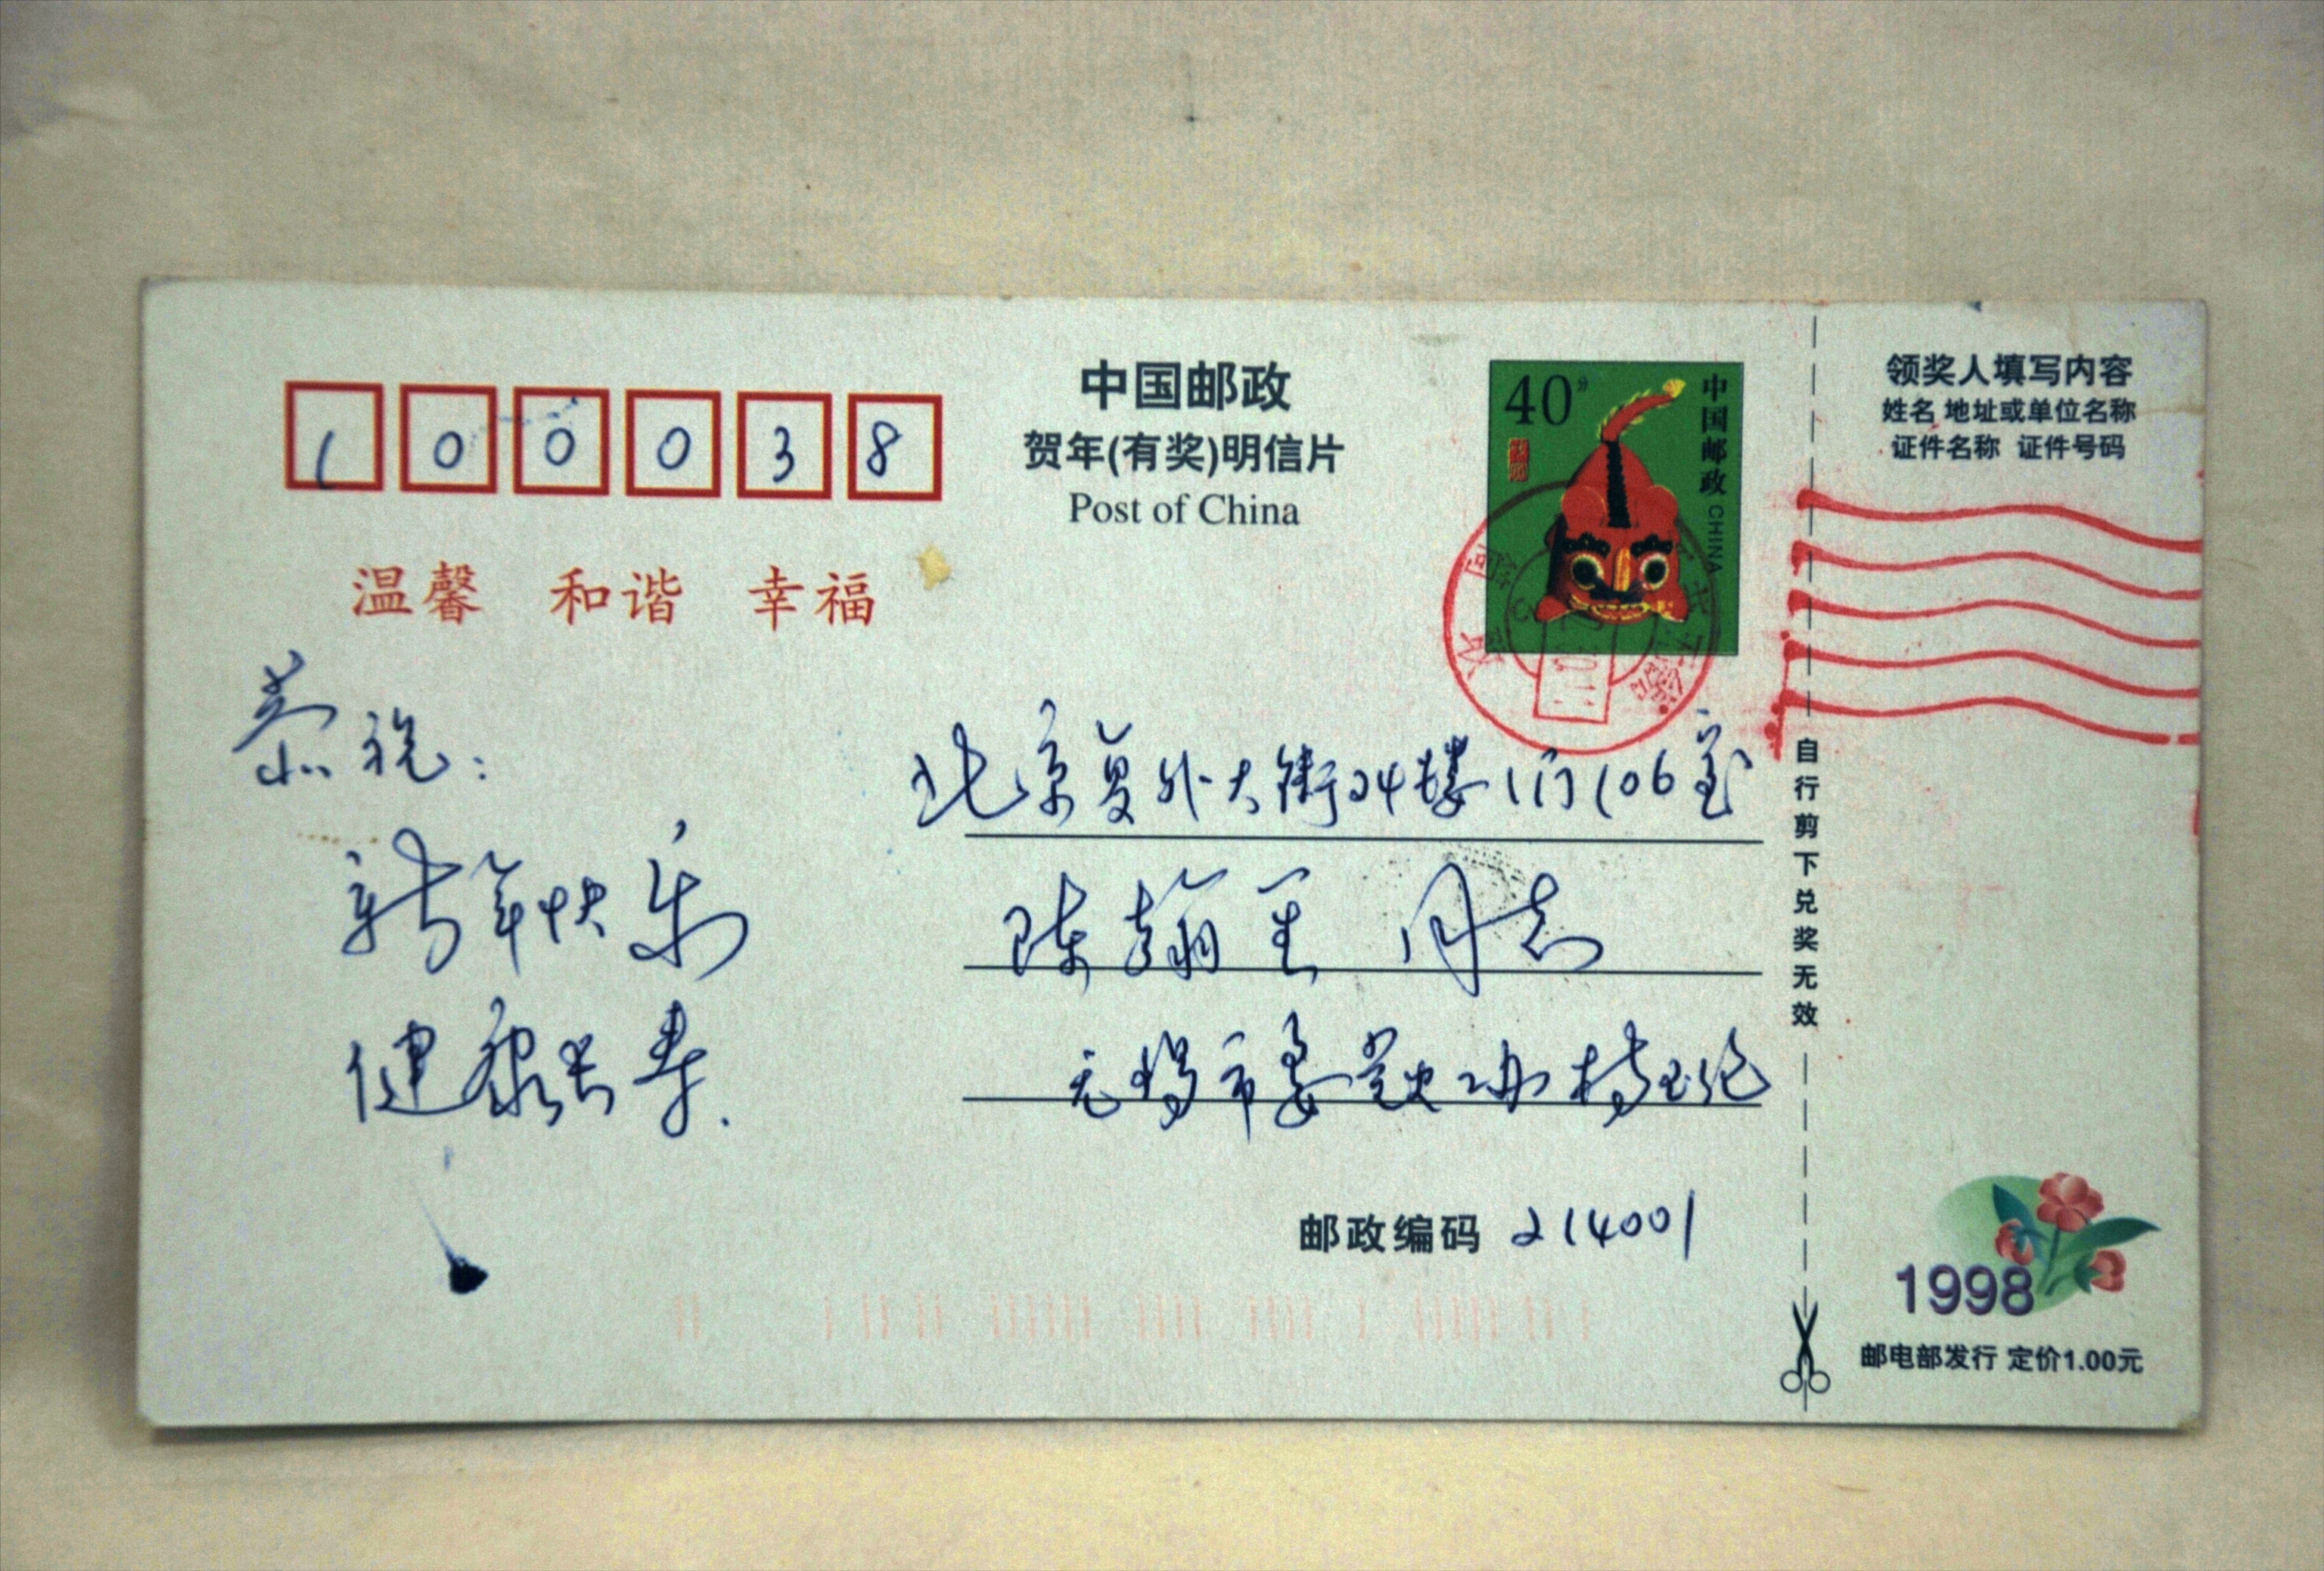 100038
中国邮政
贺年(有奖)明信片
Post of China
温馨 和谐 幸福
40分
中国邮政 CHINA
领奖人填写内容
姓名 地址或单位名称
证件名称 证件号码
恭祝：
新年快乐
健康长寿.
北京复外大街24楼1门106室
陈翰笙 同志
无锡市委党史办
邮政编码 214001
自行剪下兑奖无效
1998
邮电部发行 定价1.00元